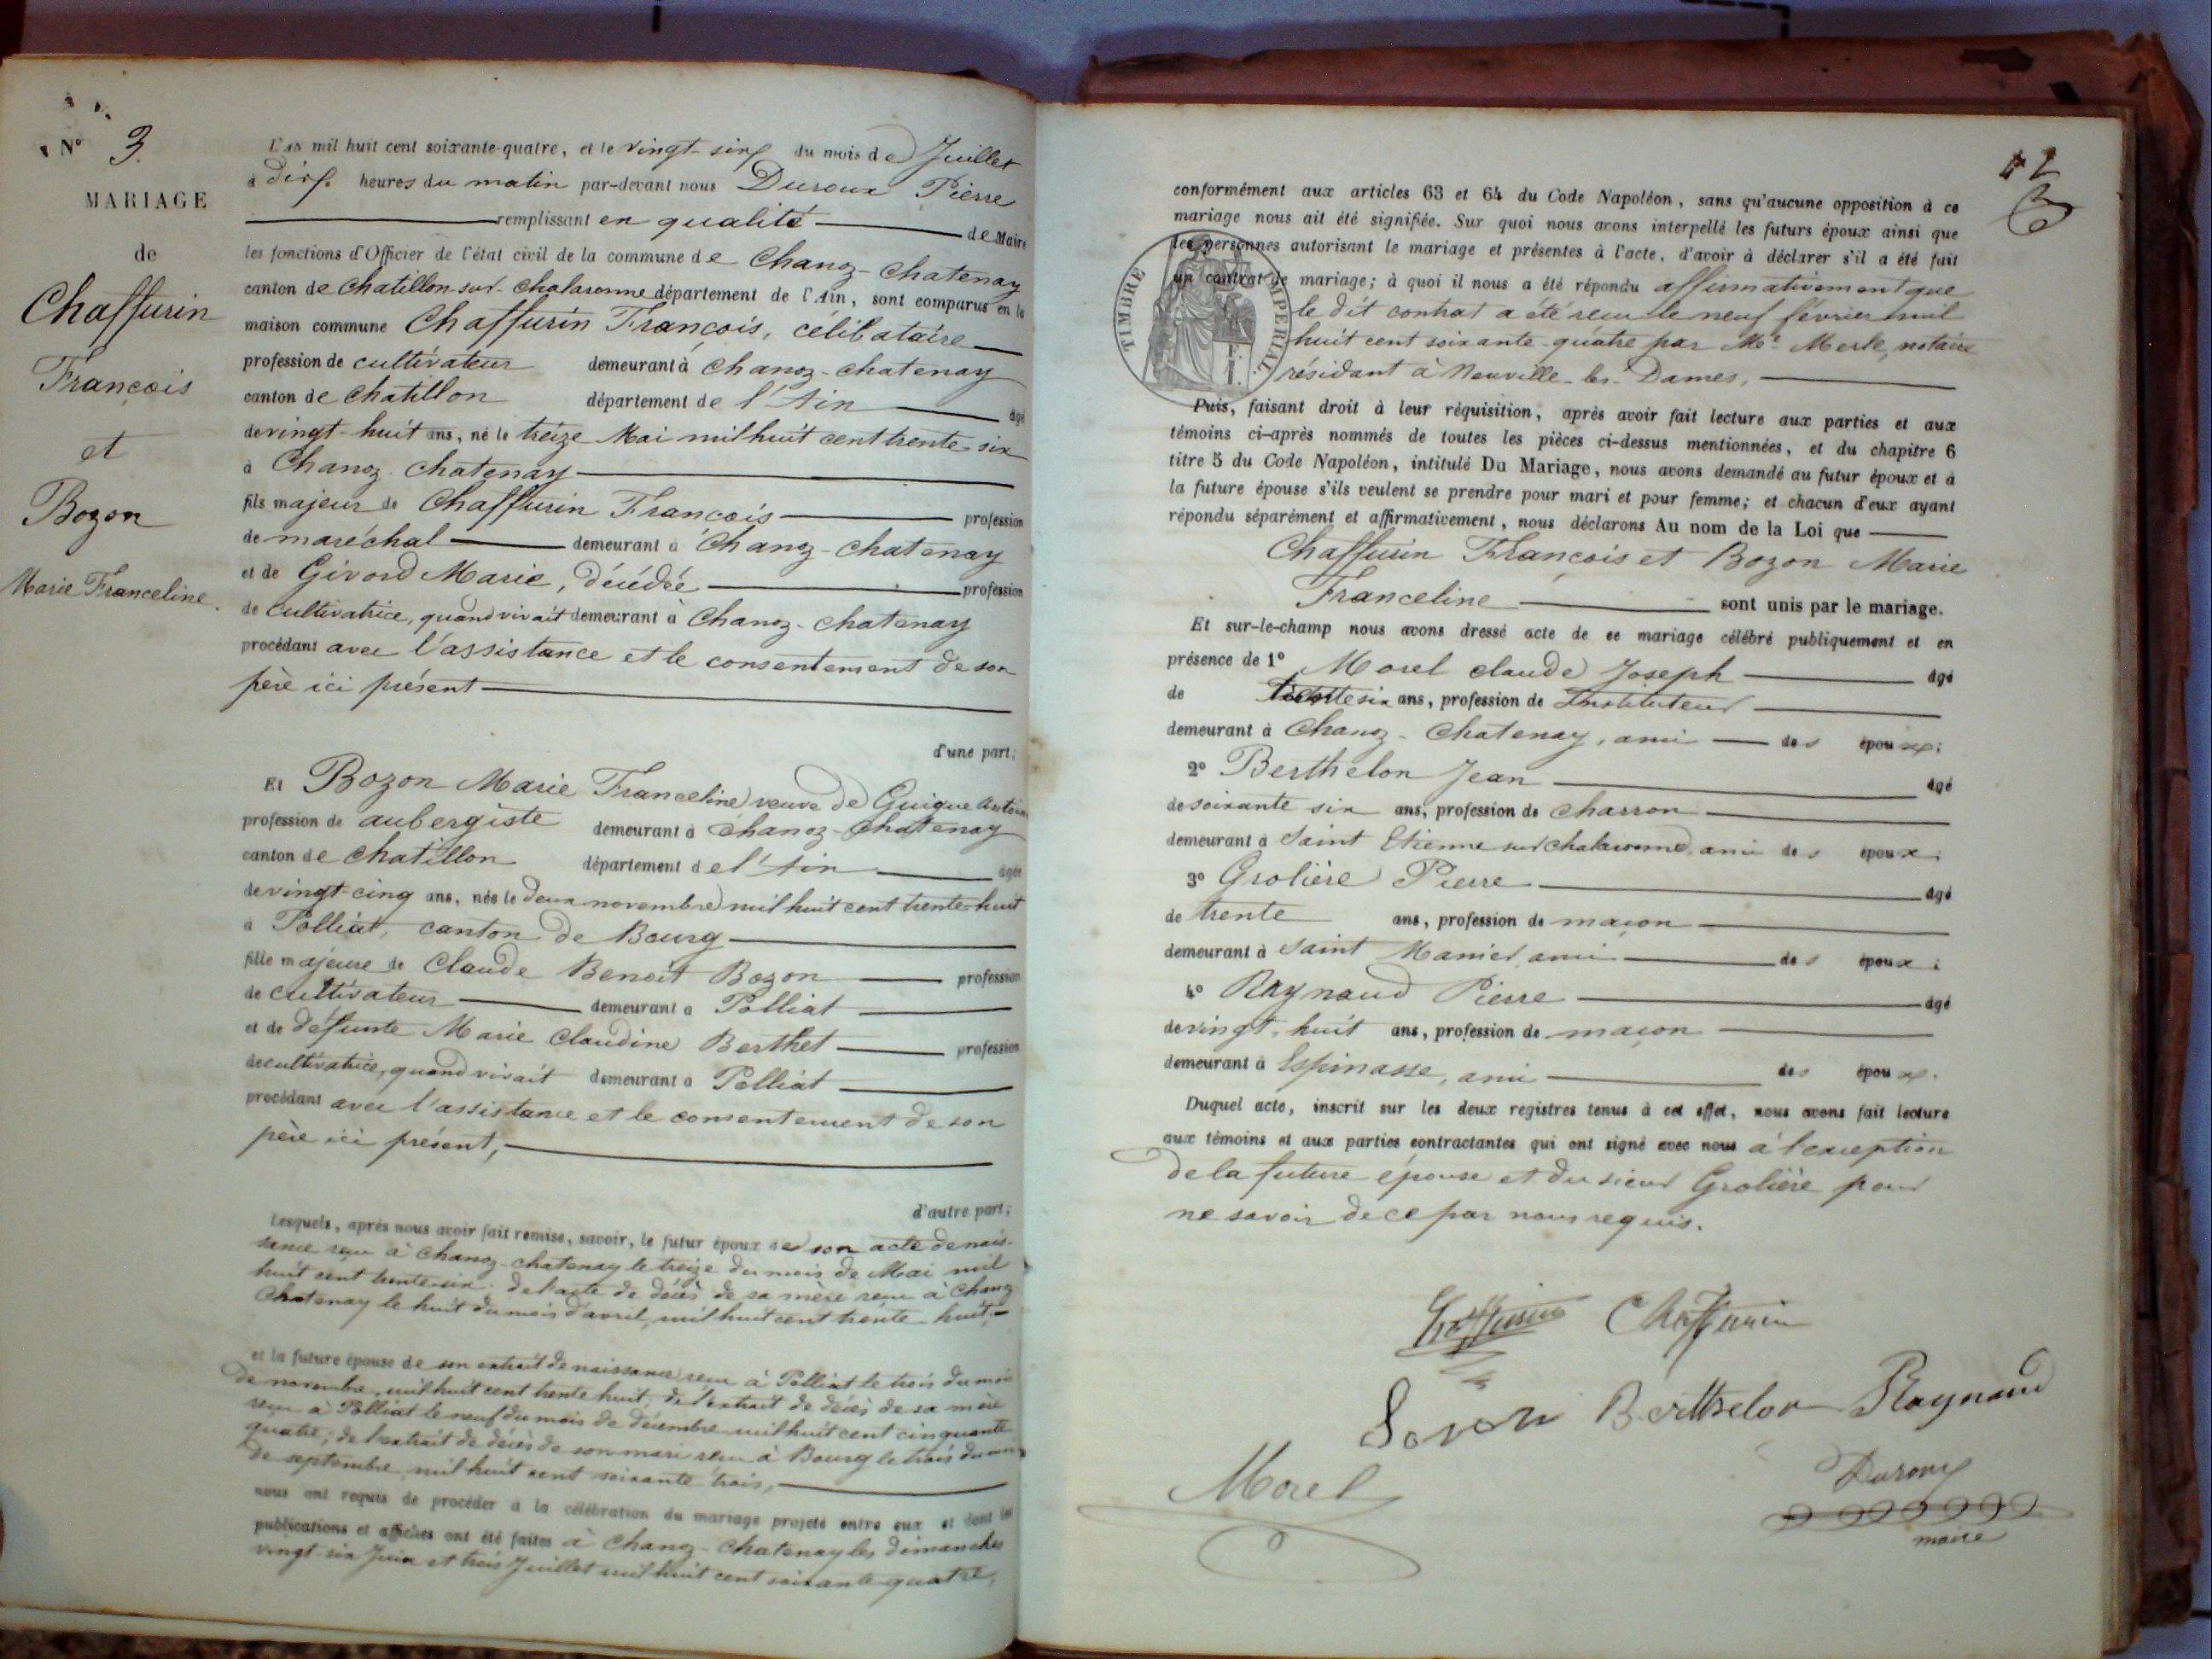 N° 3.
MARIAGE
de
Chaffurin
François
et
Bozon
Marie Franceline.
L'an mil huit cent soixante-quatre, et le vingt-six du mois de Juillet
à dix heures du matin par-devant nous Duroux Pierre
remplissant en qualité de Maire
les fonctions d'Officier de l'état civil de la commune de Chanoz-Chatenay
canton de Chatillon-sur-Chalaronne département de l'Ain, sont comparus en la
maison commune Chaffurin François, célibataire
profession de cultivateur demeurant à Chanoz-Chatenay
canton de Chatillon département de l'Ain âgé
de vingt-huit ans, né le treize Mai mil huit cent trente six
à Chanoz-Chatenay
fils majeur de Chaffurin François profession
de maréchal demeurant à Chanoz-Chatenay
et de Givord Marie, décédée profession
de cultivatrice, quand vivait demeurant à Chanoz-Chatenay
procédant avec l'assistance et le consentement de son
père ici présent
d'une part;
Et Bozon Marie Franceline veuve de Guigue Antoine
profession de aubergiste demeurant à Chanoz-Chatenay
canton de Chatillon département de l'Ain âgée
de vingt-cinq ans, née le deux novembre mil huit cent trente-huit
à Polliat, canton de Bourg
fille majeure de Claude Benoit Bozon profession
de cultivateur demeurant à Polliat
et de défunte Marie Claudine Berthet profession
de cultivatrice, quand vivait demeurant à Polliat
procédant avec l'assistance et le consentement de son
père ici présent,
d'autre part;
Lesquels, après nous avoir fait remise, savoir, le futur époux de son acte de nais-
sance reçu à Chanoz-Chatenay le treize du mois de Mai mil
huit cent trente-six; de l'acte de décès de sa mère reçu à Chanoz
Chatenay le huit du mois d'avril, mil huit cent trente-huit,
et la future épouse de son extrait de naissance reçu à Polliat le trois du mois
de novembre, mil huit cent trente huit, de l'extrait de décès de sa mère
reçu à Polliat le neuf du mois de décembre mil huit cent cinquante
quatre; de l'extrait de décès de son mari reçu à Bourg le trois du mois
de septembre mil huit cent soixante trois,
nous ont requis de procéder à la célébration du mariage projeté entre eux et dont les
publications et affiches ont été faites à Chanoz-Chatenay les dimanches
vingt-six Juin et trois Juillet mil huit cent soixante quatre,
conformément aux articles 63 et 64 du Code Napoléon, sans qu'aucune opposition à ce
mariage nous ait été signifiée. Sur quoi nous avons interpellé les futurs époux ainsi que
les personnes autorisant le mariage et présentes à l'acte, d'avoir à déclarer s'il a été fait
un contrat de mariage; à quoi il nous a été répondu affirmativement que
le dit contrat a été reçu le neuf février mil
huit cent soixante-quatre par Me Merle, notaire
résidant à Neuville-les-Dames.
TIMBRE IMPERIAL.
Puis, faisant droit à leur réquisition, après avoir fait lecture aux parties et aux
témoins ci-après nommés de toutes les pièces ci-dessus mentionnées, et du chapitre 6
titre 5 du Code Napoléon, intitulé Du Mariage, nous avons demandé au futur époux et à
la future épouse s'ils veulent se prendre pour mari et pour femme; et chacun d'eux ayant
répondu séparément et affirmativement, nous déclarons Au nom de la Loi que
Chaffurin François et Bozon Marie
Franceline sont unis par le mariage.
Et sur-le-champ nous avons dressé acte de ce mariage célébré publiquement et en
présence de 1° Morel Claude Joseph âgé
de trente six ans, profession de Instituteur
demeurant à Chanoz-Chatenay, ami des époux;
2° Berthelon Jean âgé
de soixante six ans, profession de charron
demeurant à Saint Etienne sur Chalaronne, ami des époux;
3° Grolière Pierre âgé
de trente ans, profession de maçon
demeurant à Saint ami des époux;
4° Raynaud Pierre âgé
de vingt-huit ans, profession de maçon
demeurant à Espinasse, ami des époux.
Duquel acte, inscrit sur les deux registres tenus à cet effet, nous avons fait lecture
aux témoins et aux parties contractantes qui ont signé avec nous à l'exception
de la future épouse et du sieur Grolière pour
ne savoir de ce par nous requis.
Chaffurin Chaffurin
Bozon Berthelon Raynaud
Morel Duroux
maire